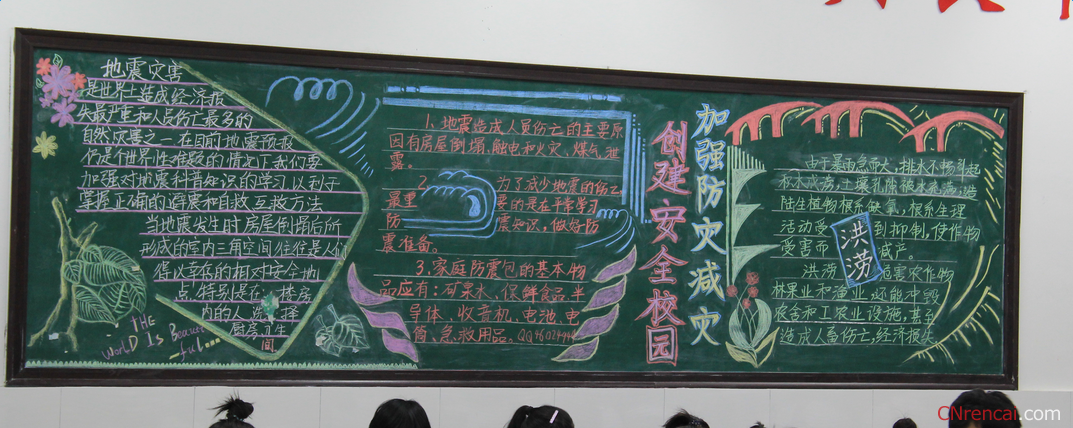 地震灾害
是世界上造成经济损
失最严重和人员伤亡最多的
自然灾害之一.在目前地震预报
仍是个世界性难题的情况下我们要
加强对地震科普知识的学习,以利于
掌握正确的避震和自救互救方法.
当地震发生时房屋倒塌后所
形成的室内三角空间往往是人们
得以幸存的相对安全地
点.特别是在 楼房
内的人 选择
厨房卫生
间
THE
WORLD Is Beauti
ful
1.地震造成人员伤亡的主要原
因有房屋倒塌,触电和火灾、煤气泄
露。
2. 为了减少地震的伤亡,
最重 要的是在平常学习
防 震知识,做好防
震准备。
3.家庭防震包的基本物
品应有:矿泉水、保鲜食品、半
导体、收音机、电池、电
筒、急救用品。
创建安全校园
加强防灾减灾
由于暴雨急而大,排水不畅引起
积水成涝,土壤孔隙被水充满,造
陆生植物根系缺氧,根系生理
活动受 到抑制,使作物
受害而 减产。
洪涝
洪涝 危害农作物
林果业和渔业,还能冲毁
农舍和工农业设施,甚至
造成人畜伤亡,经济损失
CNrencai.com